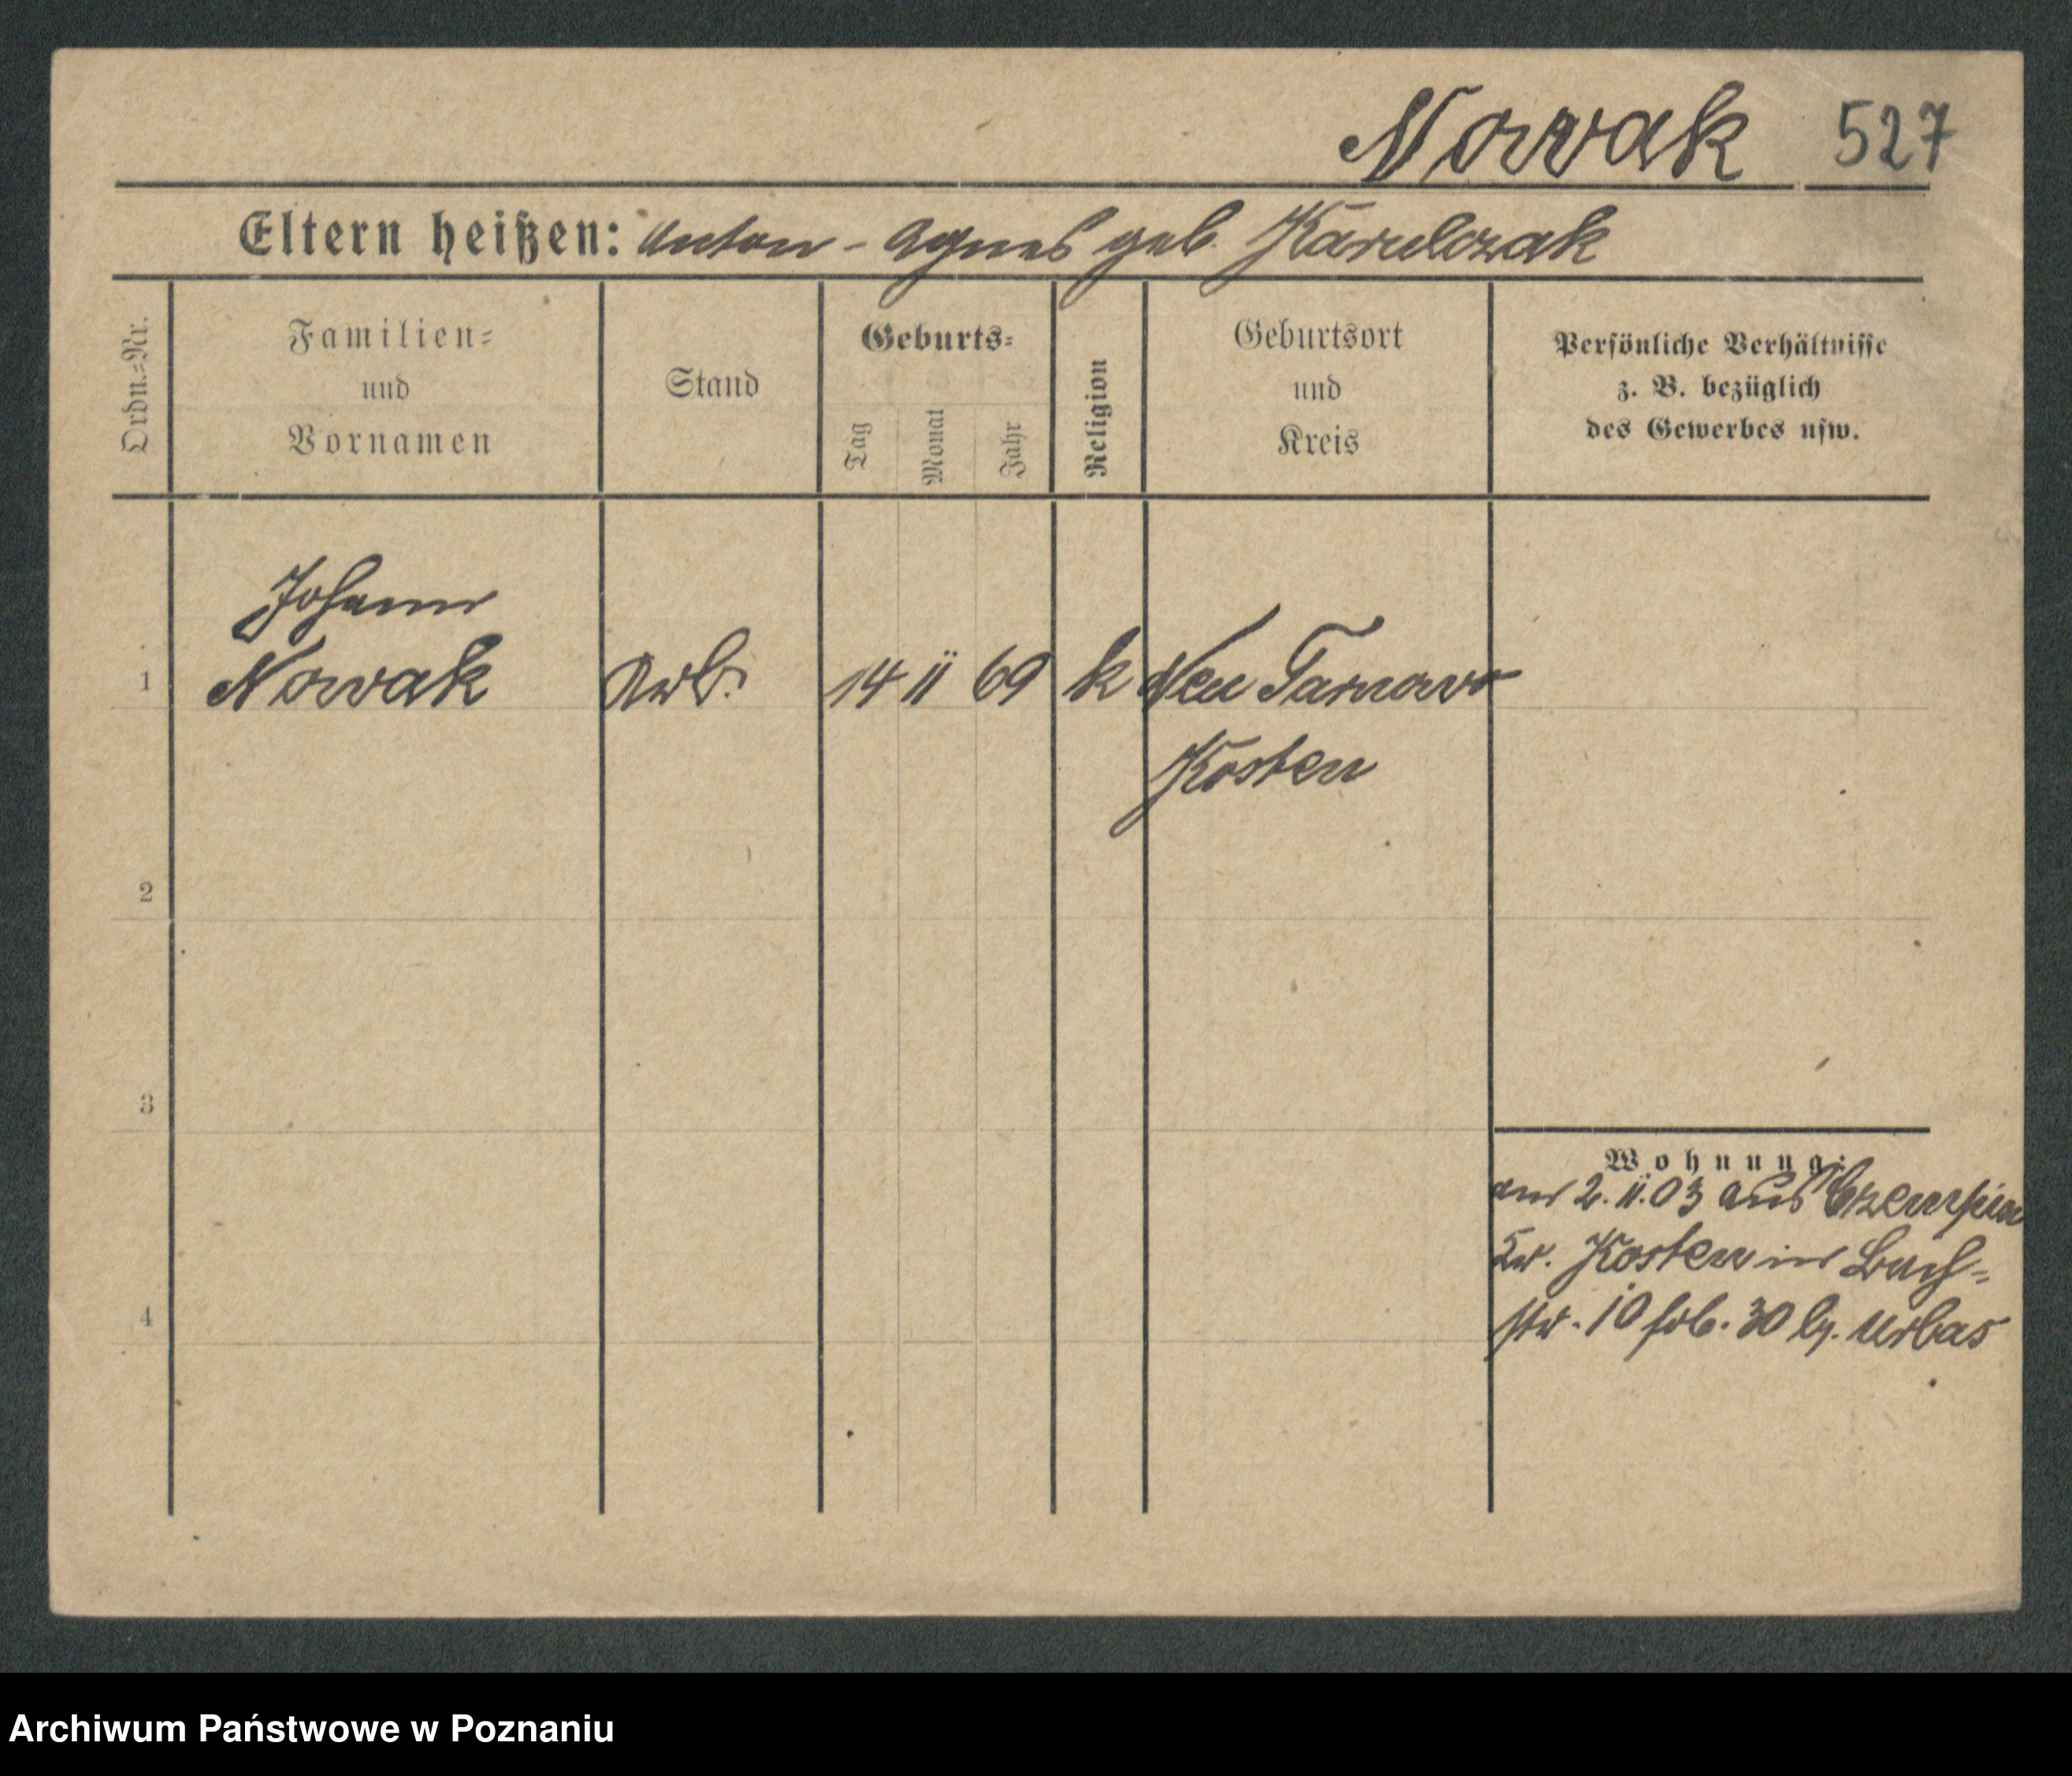 Nowak 527
Eltern heißen: Anton - Agnes geb. Karulczak
Ordn.=Nr.
Familien=
und
Vornamen
Stand
Geburts=
Tag
Monat
Jahr
Religion
Geburtsort
und
Kreis
Persönliche Verhältnisse
z. B. bezüglich
des Gewerbes usw.
Johann
1 Nowak Arb. 14 11 69 k Neu Tarnowo
Kosten
2
3
4
Wohnung:
am 2.11.03 aus Czempin
Kr. Kosten in Bach=
str. 10 frb. 30 by. Urbas
Archiwum Państwowe w Poznaniu